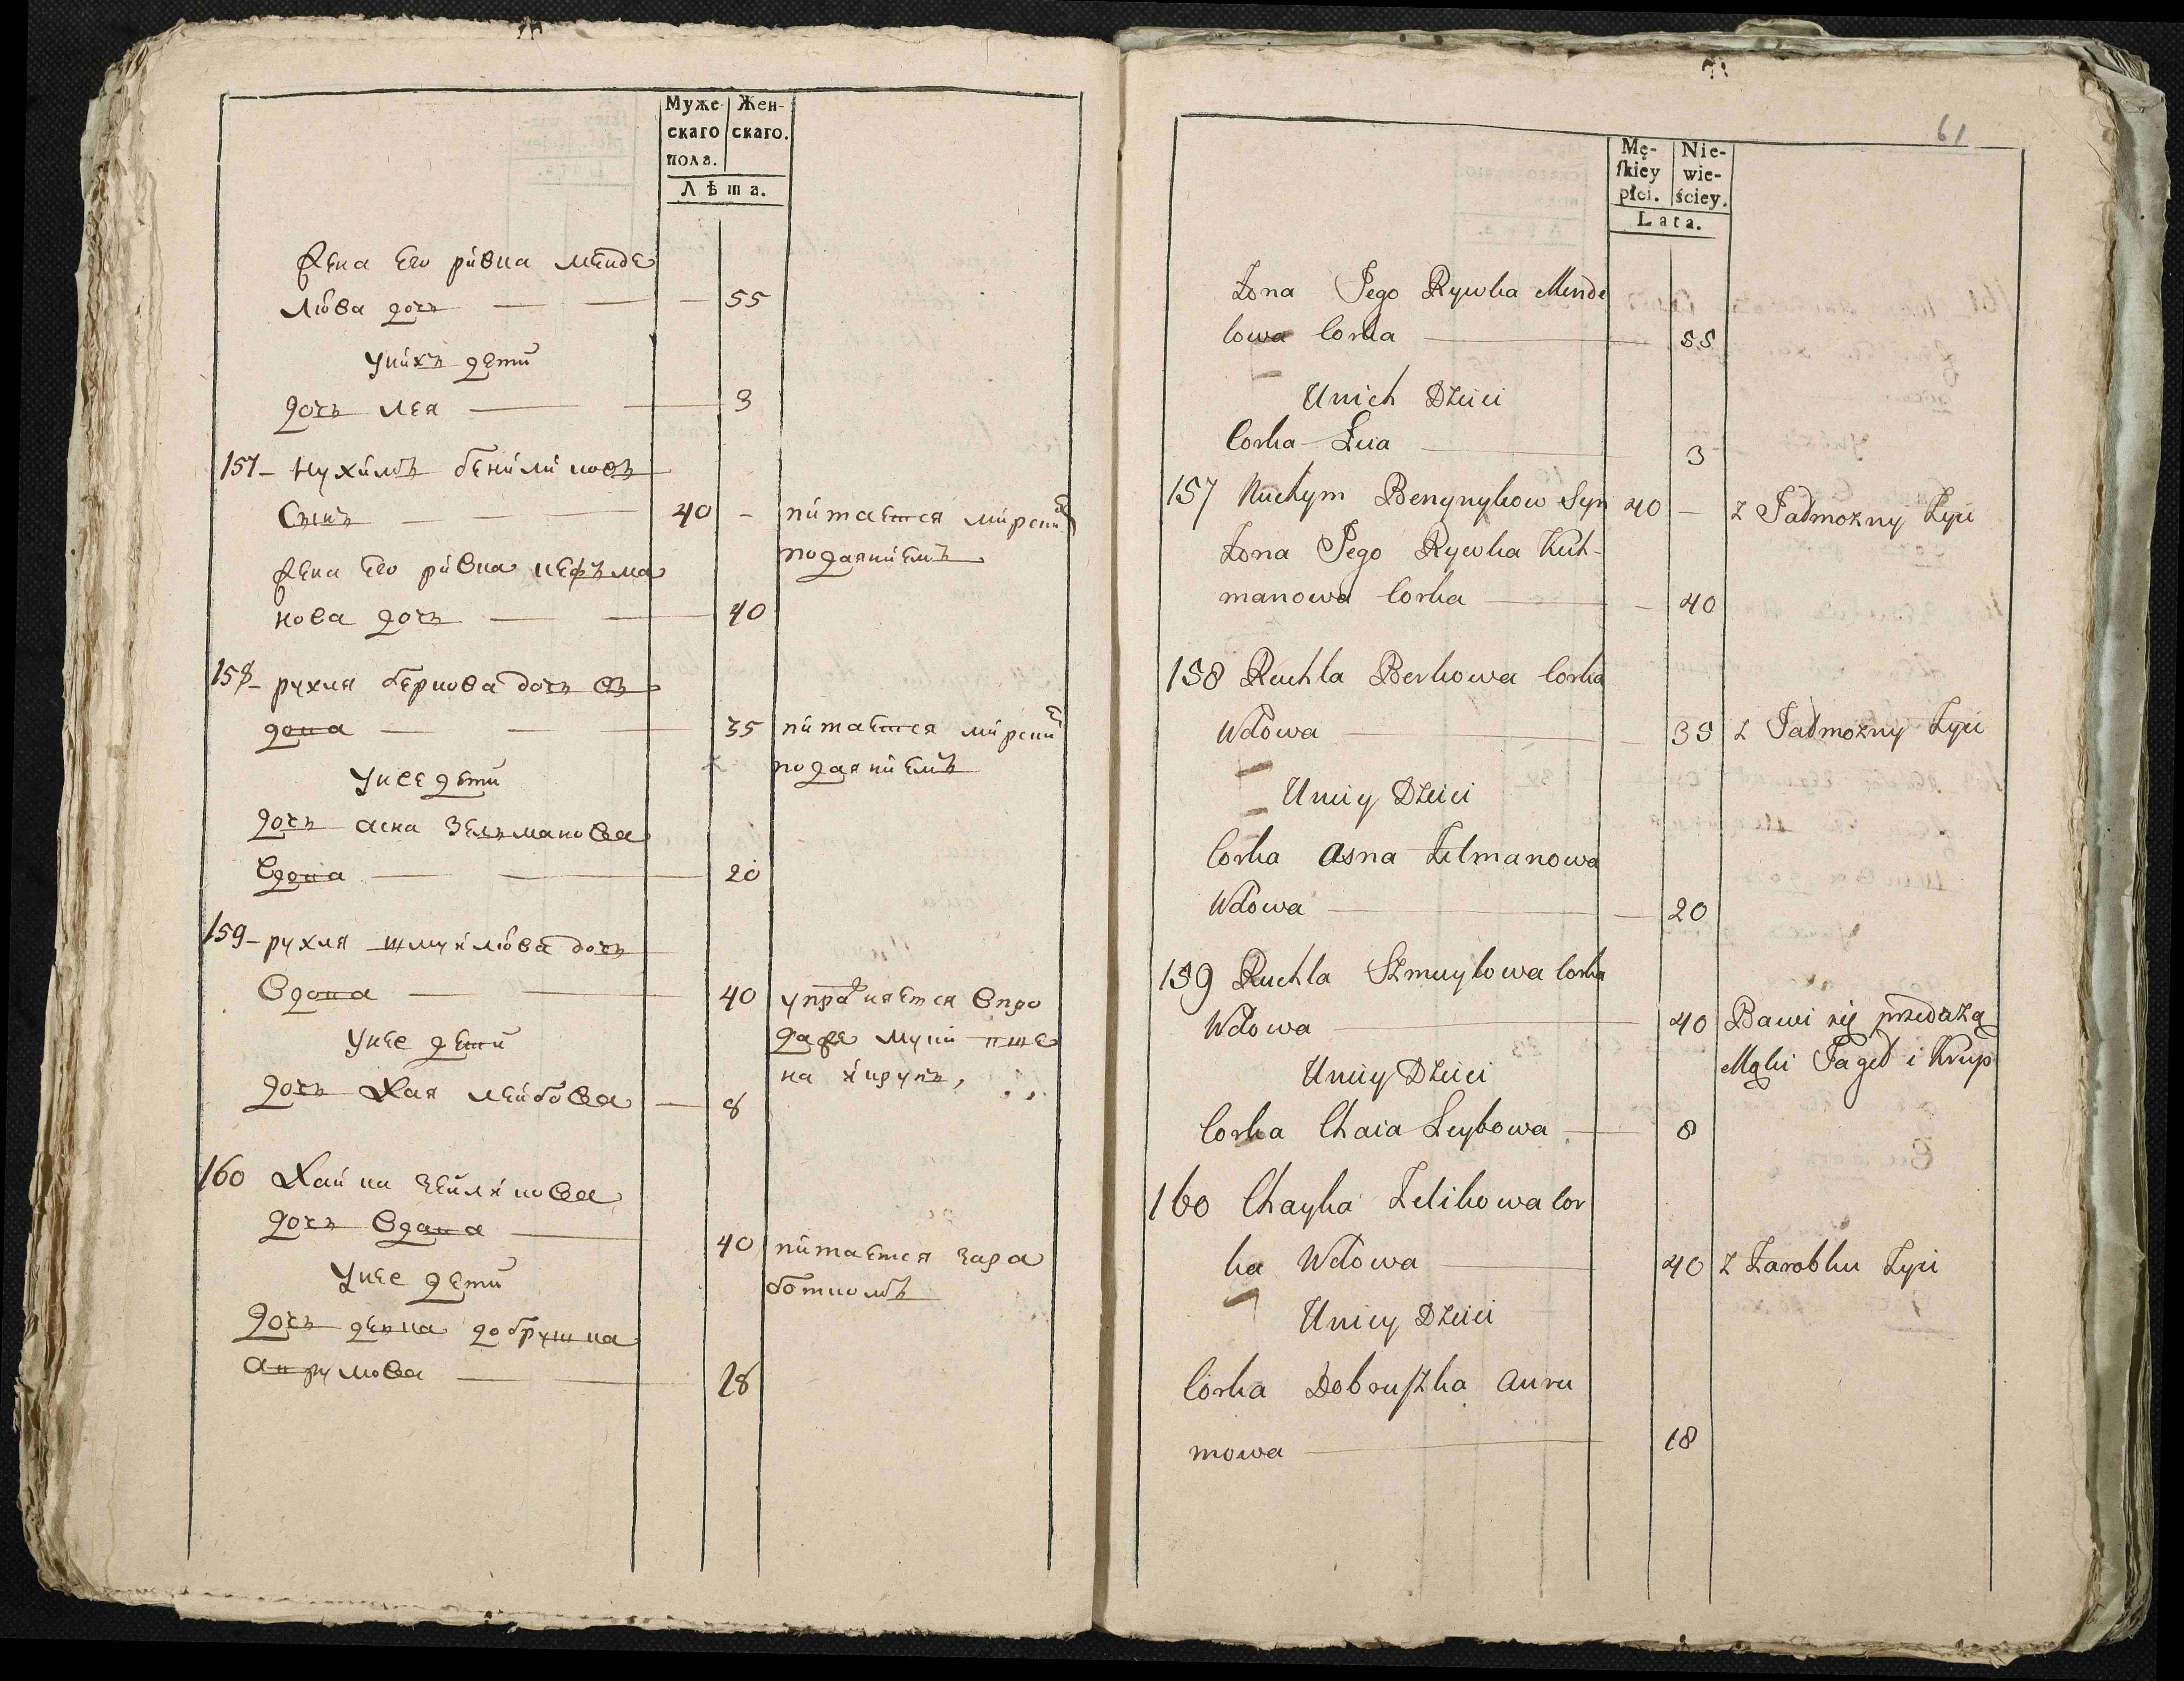 Муже- Жен-
скаго скаго.
пола.
Лѣта.
Жена Его ривка менде
люва дочь — 55
Уних дети
дочь лея — 3
157 – Нухимъ бениминовъ
Сынъ — 40 – питается мирским
подаяниемъ
Жена Его ривка
нова дочь — 40
158 – рухля беркова дочь в
дова — 35 питается мирским
подаяниемъ
Унее дети
дочь асна Зелмановa
Вдова — 20
159 – рухля шмуйлова дочь
Вдова — 40 упражняется Впро
даже муки пше
Унее дети
на и крупъ,
дочь Хая лейбова — 8
160 Хайка Зеликова
дочь Вдова — 40 питается зара
боткомъ
Унее дети
дочь девка добрушка
аврумова — 18
61
Mę- Nie-
skiey wie-
płci. ściey.
Lata.
Żona Jego Rywka Mende
lowa Corka — 55
Unich Dzieci
Corka Leia — 3
157 Nuchym Benynykow Syn 40 – z Jadmożny Żyie
Żona Jego Rywka Kut-
manowa Corka — 40
158 Ruchla Berkowa Corka
Wdowa — 35 z Jadmożny Żyie
Uniey Dzieci
Corka Asna Zelmanowa
Wdowa — 20
159 Ruchla Szmuylowa Corka
Wdowa — 40 Bawi się przedażą
Mąki Jagieł i Krup
Uniey Dzieci
Corka Chaia Leybowa — 8
160 Chayka Zelikowa Cor
ka Wdowa — 40 Z Zarobku Żyie
Uniey Dzieci
Corka Dobruszka Auru
mowa — 18